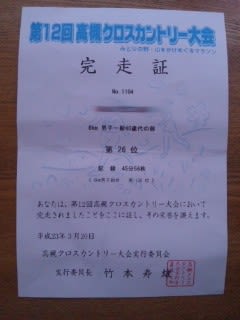 第12回高槻クロスカントリー大会
みどりの野・山をかけめぐるマラソン
完走証
No.1104
6km 男子一般40歳代の部
第 26 位
記録 45分56秒
あなたは、第12回高槻クロスカントリー大会において
完走されましたことをここに証し、その栄誉を讃えます。
平成23年3月20日
高槻クロスカントリー大会実行委員会
実行委員長 竹本寿雄